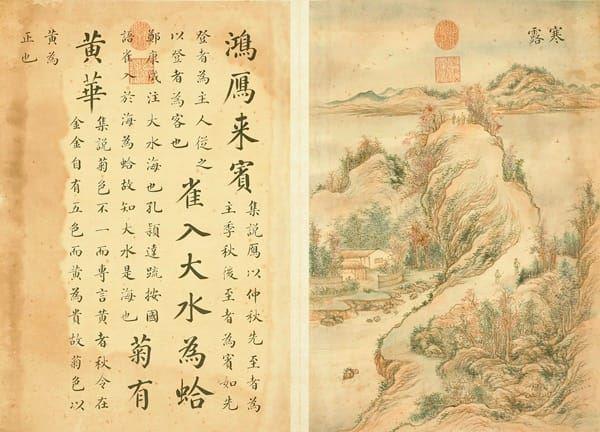 寒露
鴻鴈来賓
集說鴈以仲秋先至者為
主季秋後至者為賓如先
登者為主人從之
以登者為客也
雀入大水為蛤
鄭康成注大水海也孔穎達疏按國
語雀入於海為蛤故知大水是海也
菊有
黄華
集說菊色不一而專言黄者秋令在
金金自有五色而黄為貴故菊色以
黄為
正也